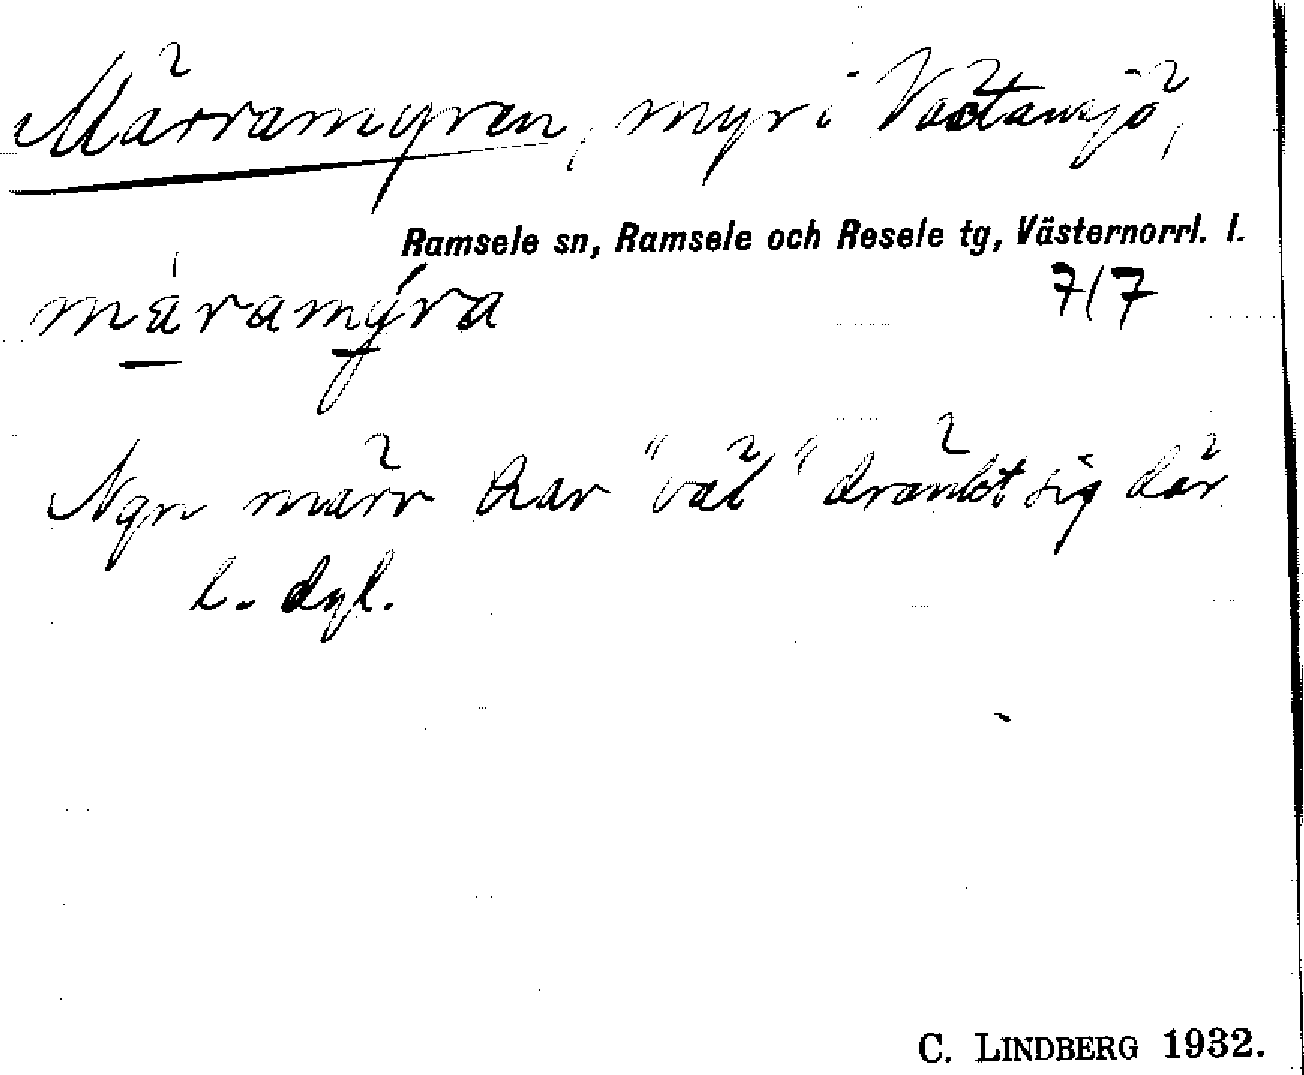 Märramyren, myr i Västansjö,
Ramsele sn, Ramsele och Resele tg, Västernorrl. l.
máramýra 7/7
Ngn märr har "väl" dränkt sig där
l. dyl.
C. LINDBERG 1932.